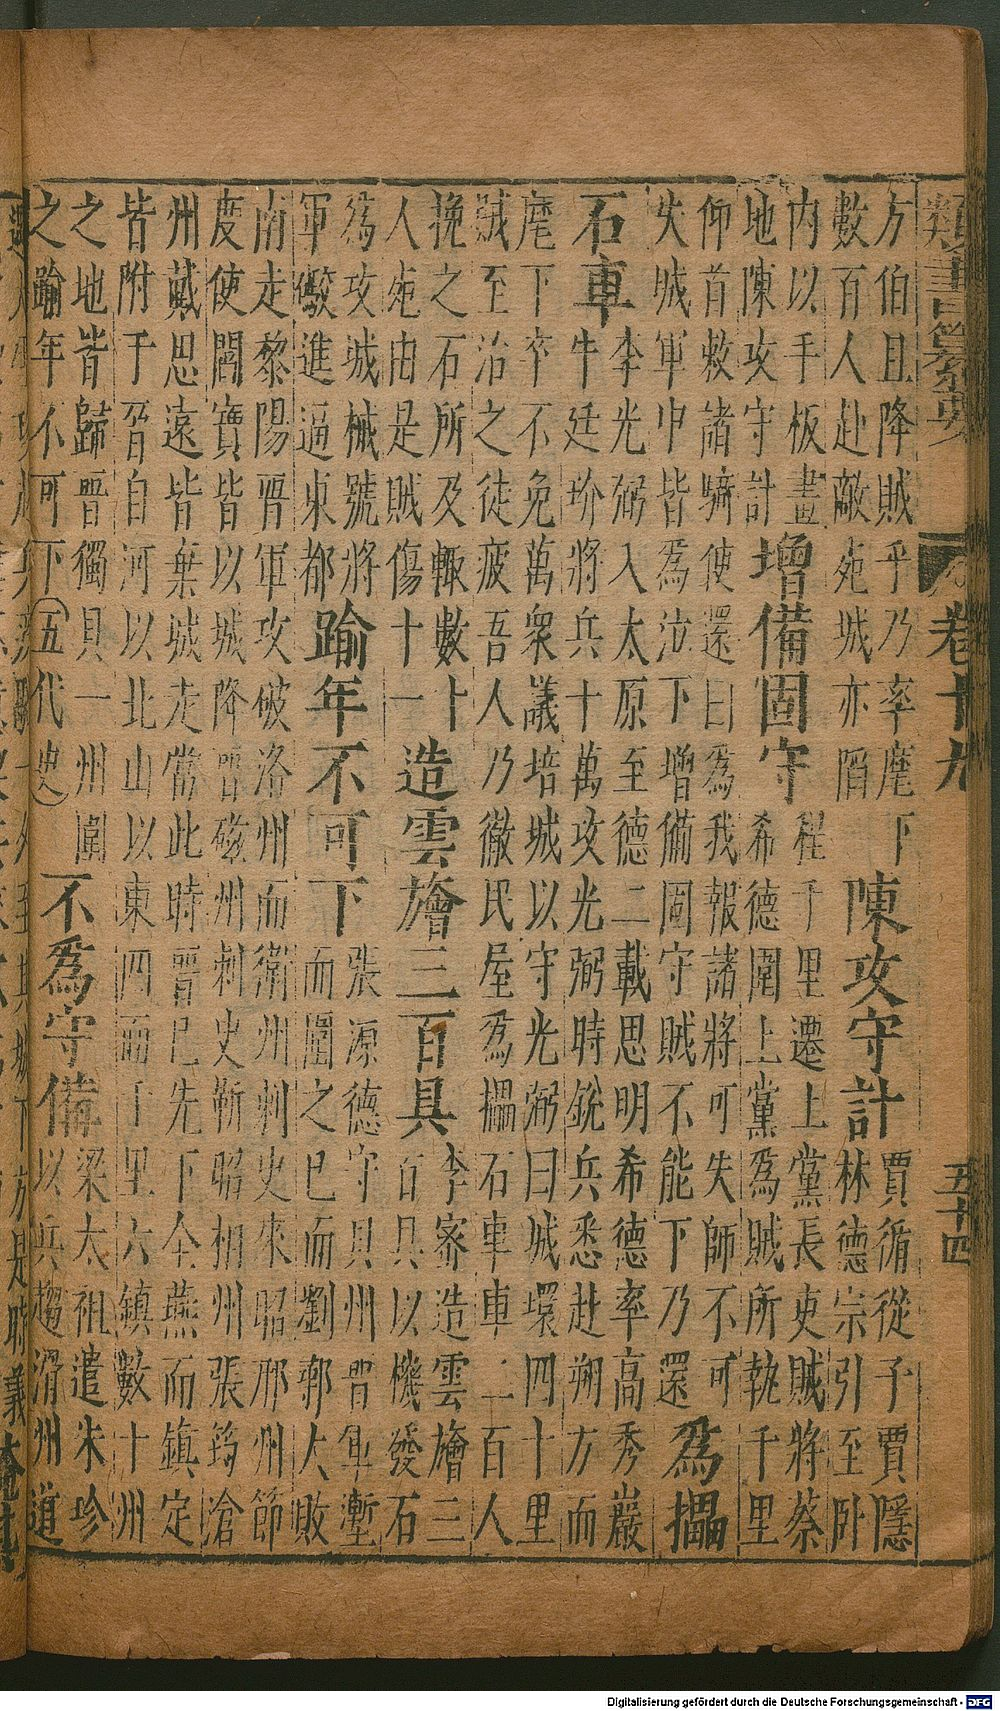 類書纂要 卷十九 五十四
方伯且降賊乎乃率麾下
數百人赴敵死城亦陷
陳攻守計
賈循從子賈隱
林德宗引至卧
內以手板畫
地陳攻守計
增備固守
程千里遷上黨長吏賊將蔡
希德圍上黨為賊所執千里
仰首敕諸騎使還曰為我報諸將可失師不可
失城軍中皆為泣下增備固守賊不能下乃還
為擂
石車
李光弼入太原至德二載思明希德率高秀巖
牛廷玠將兵十萬攻光弼時銳兵悉赴朔方而
麾下卒不免萬衆議培城以守光弼曰城環四十里
賊至治之徒疲吾人乃徹民屋爲擂石車車二百人
挽之石所及輒數十
人死由是賊傷十一
造雲旝三百具
李密造雲旝三
百具以機發石
為攻城械號將
軍儆進逼東都
踰年不可下
張源德守貝州晉軍塹
而圍之已而劉鄩大敗
南走黎陽晉軍攻破洛州而衛州刺史來昭邢州節
度使閻寶皆以城降晉磁州刺史靳昭相州張筠滄
州戴思遠皆棄城走當此時晉已先下全燕而鎮定
皆附于晉自河以北山以東四面千里六鎮數十州
之地皆歸晉獨貝一州圍
之踰年不可下(五代史)
不爲守備
梁太祖遣朱珍
以兵趨滑州道
Digitalisierung gefördert durch die Deutsche Forschungsgemeinschaft - DFG